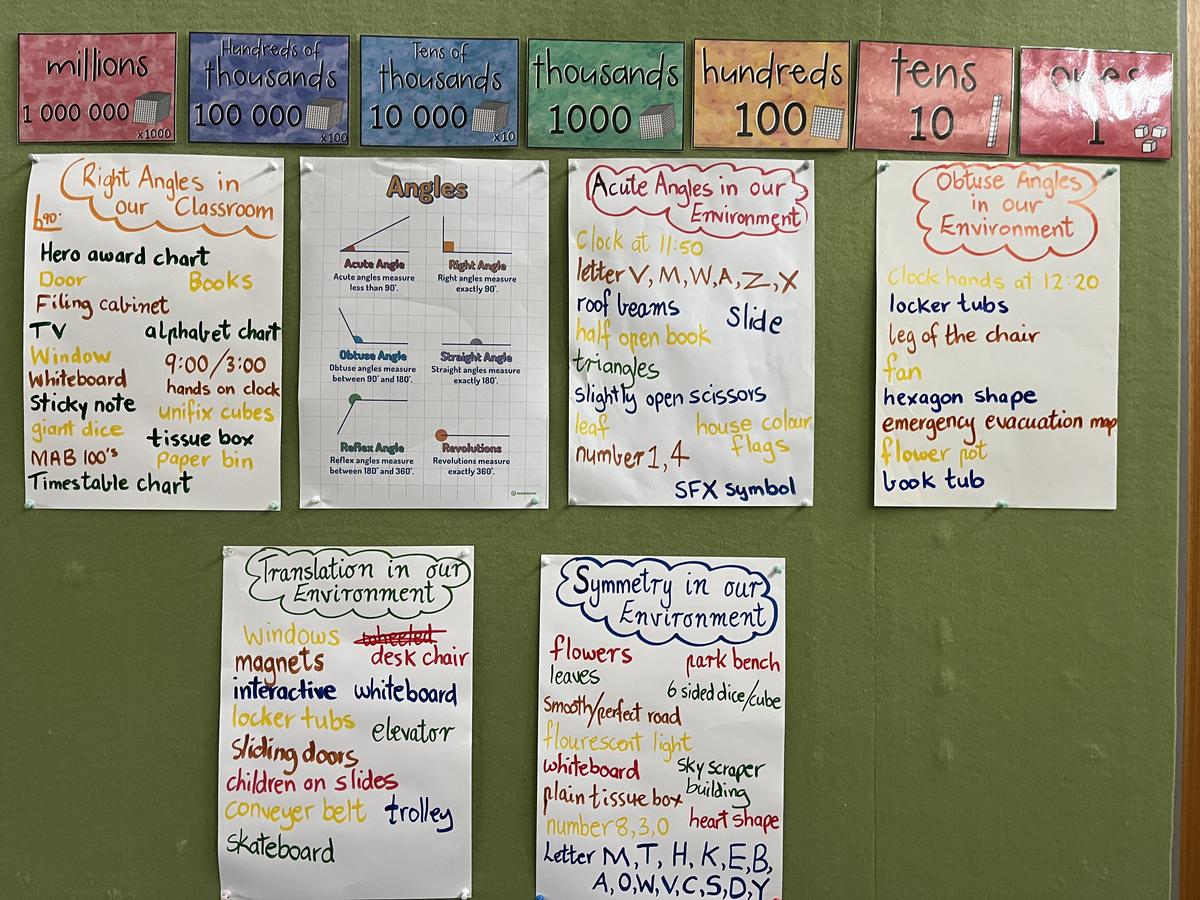 millions
1 000 000
x1000
Hundreds of
thousands
100 000
x100
Tens of
thousands
10 000
x10
thousands
1000
hundreds
100
tens
10
ones
1
Right Angles in
our Classroom
90°
Hero award chart
Door Books
Filing cabinet
TV alphabet chart
Window 9:00/3:00
Whiteboard hands on clock
Sticky note unifix cubes
giant dice tissue box
MAB 100's paper bin
Timestable chart
Angles
Acute Angle
Acute angles measure
less than 90°.
Right Angle
Right angles measure
exactly 90°.
Obtuse Angle
Obtuse angles measure
between 90° and 180°.
Straight Angle
Straight angles measure
exactly 180°.
Reflex Angle
Reflex angles measure
between 180° and 360°.
Revolutions
Revolutions measure
exactly 360°.
Acute Angles in our
Environment
Clock at 11:50
letter V, M, W, A, Z, X
roof beams Slide
half open book
triangles
slightly open scissors
leaf house colour
flags
number 1, 4
SFX symbol
Obtuse Angles
in our
Environment
Clock hands at 12:20
locker tubs
leg of the chair
fan
hexagon shape
emergency evacuation map
flower pot
book tub
Translation in our
Environment
Windows wheeled
magnets desk chair
interactive whiteboard
locker tubs elevator
sliding doors
children on slides
conveyer belt trolley
skateboard
Symmetry in our
Environment
flowers park bench
leaves 6 sided dice/cube
smooth/perfect road
flourescent light
whiteboard sky scraper
building
plain tissue box
number 8, 3, 0 heart shape
Letter M, T, H, K, E, B,
A, O, W, V, C, S, D, Y